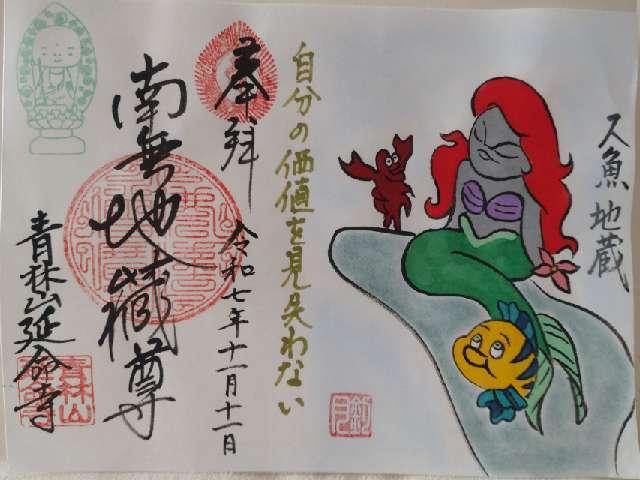 人魚地蔵
自分の価値を見失わない
奉拝
令和七年十一月十一日
南無地蔵尊
青林山延命寺
青林山